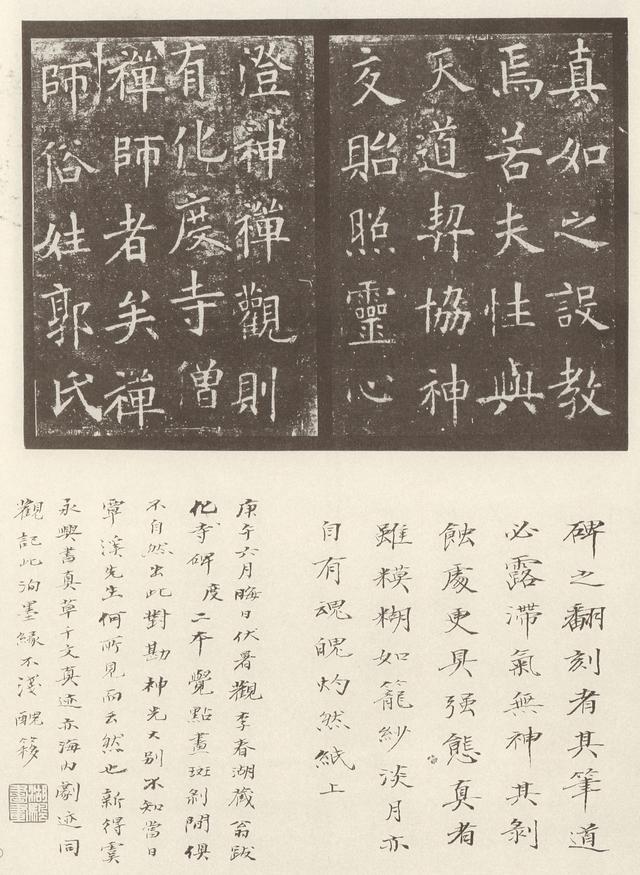 真如之設教
焉若夫性與
天道契協神
交貽照靈心
澄神禪觀則
有化度寺僧
禪師者矣禪
師俗姓郭氏
碑之翻刻者其筆道
必露滯氣無神其剝
蝕處更具强態真者
雖糢糊如籠紗淡月亦
自有魂魄灼然紙上
庚午六月晦日伏暑觀李春湖藏翁跋
化寺碑度二本覺點畫斑剝間俱
不自然出此對勘神光大别不知當日
覃溪先生何所見而云然也新得虞
永興書真草千文真迹亦海内劇迹同
觀記此洵墨緣不淺醜簃